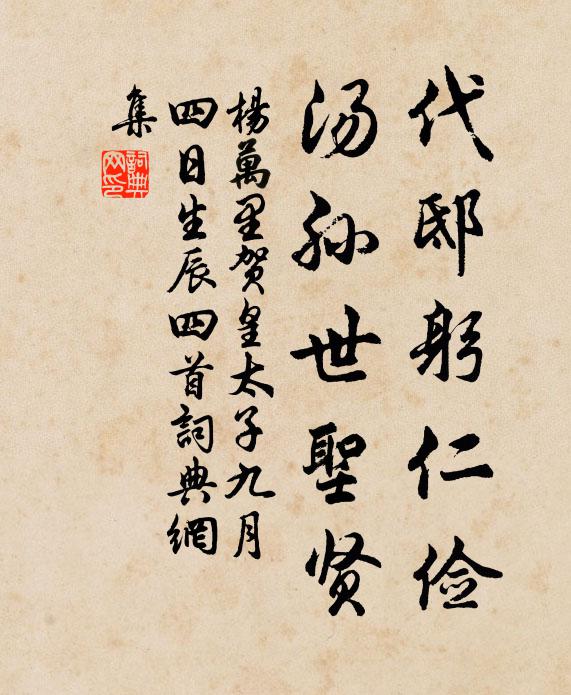 代邸躬仁俭
汤孙世聖贤
楊萬里贺皇太子九月
四日生辰四首詞典網
集
詞典
网印